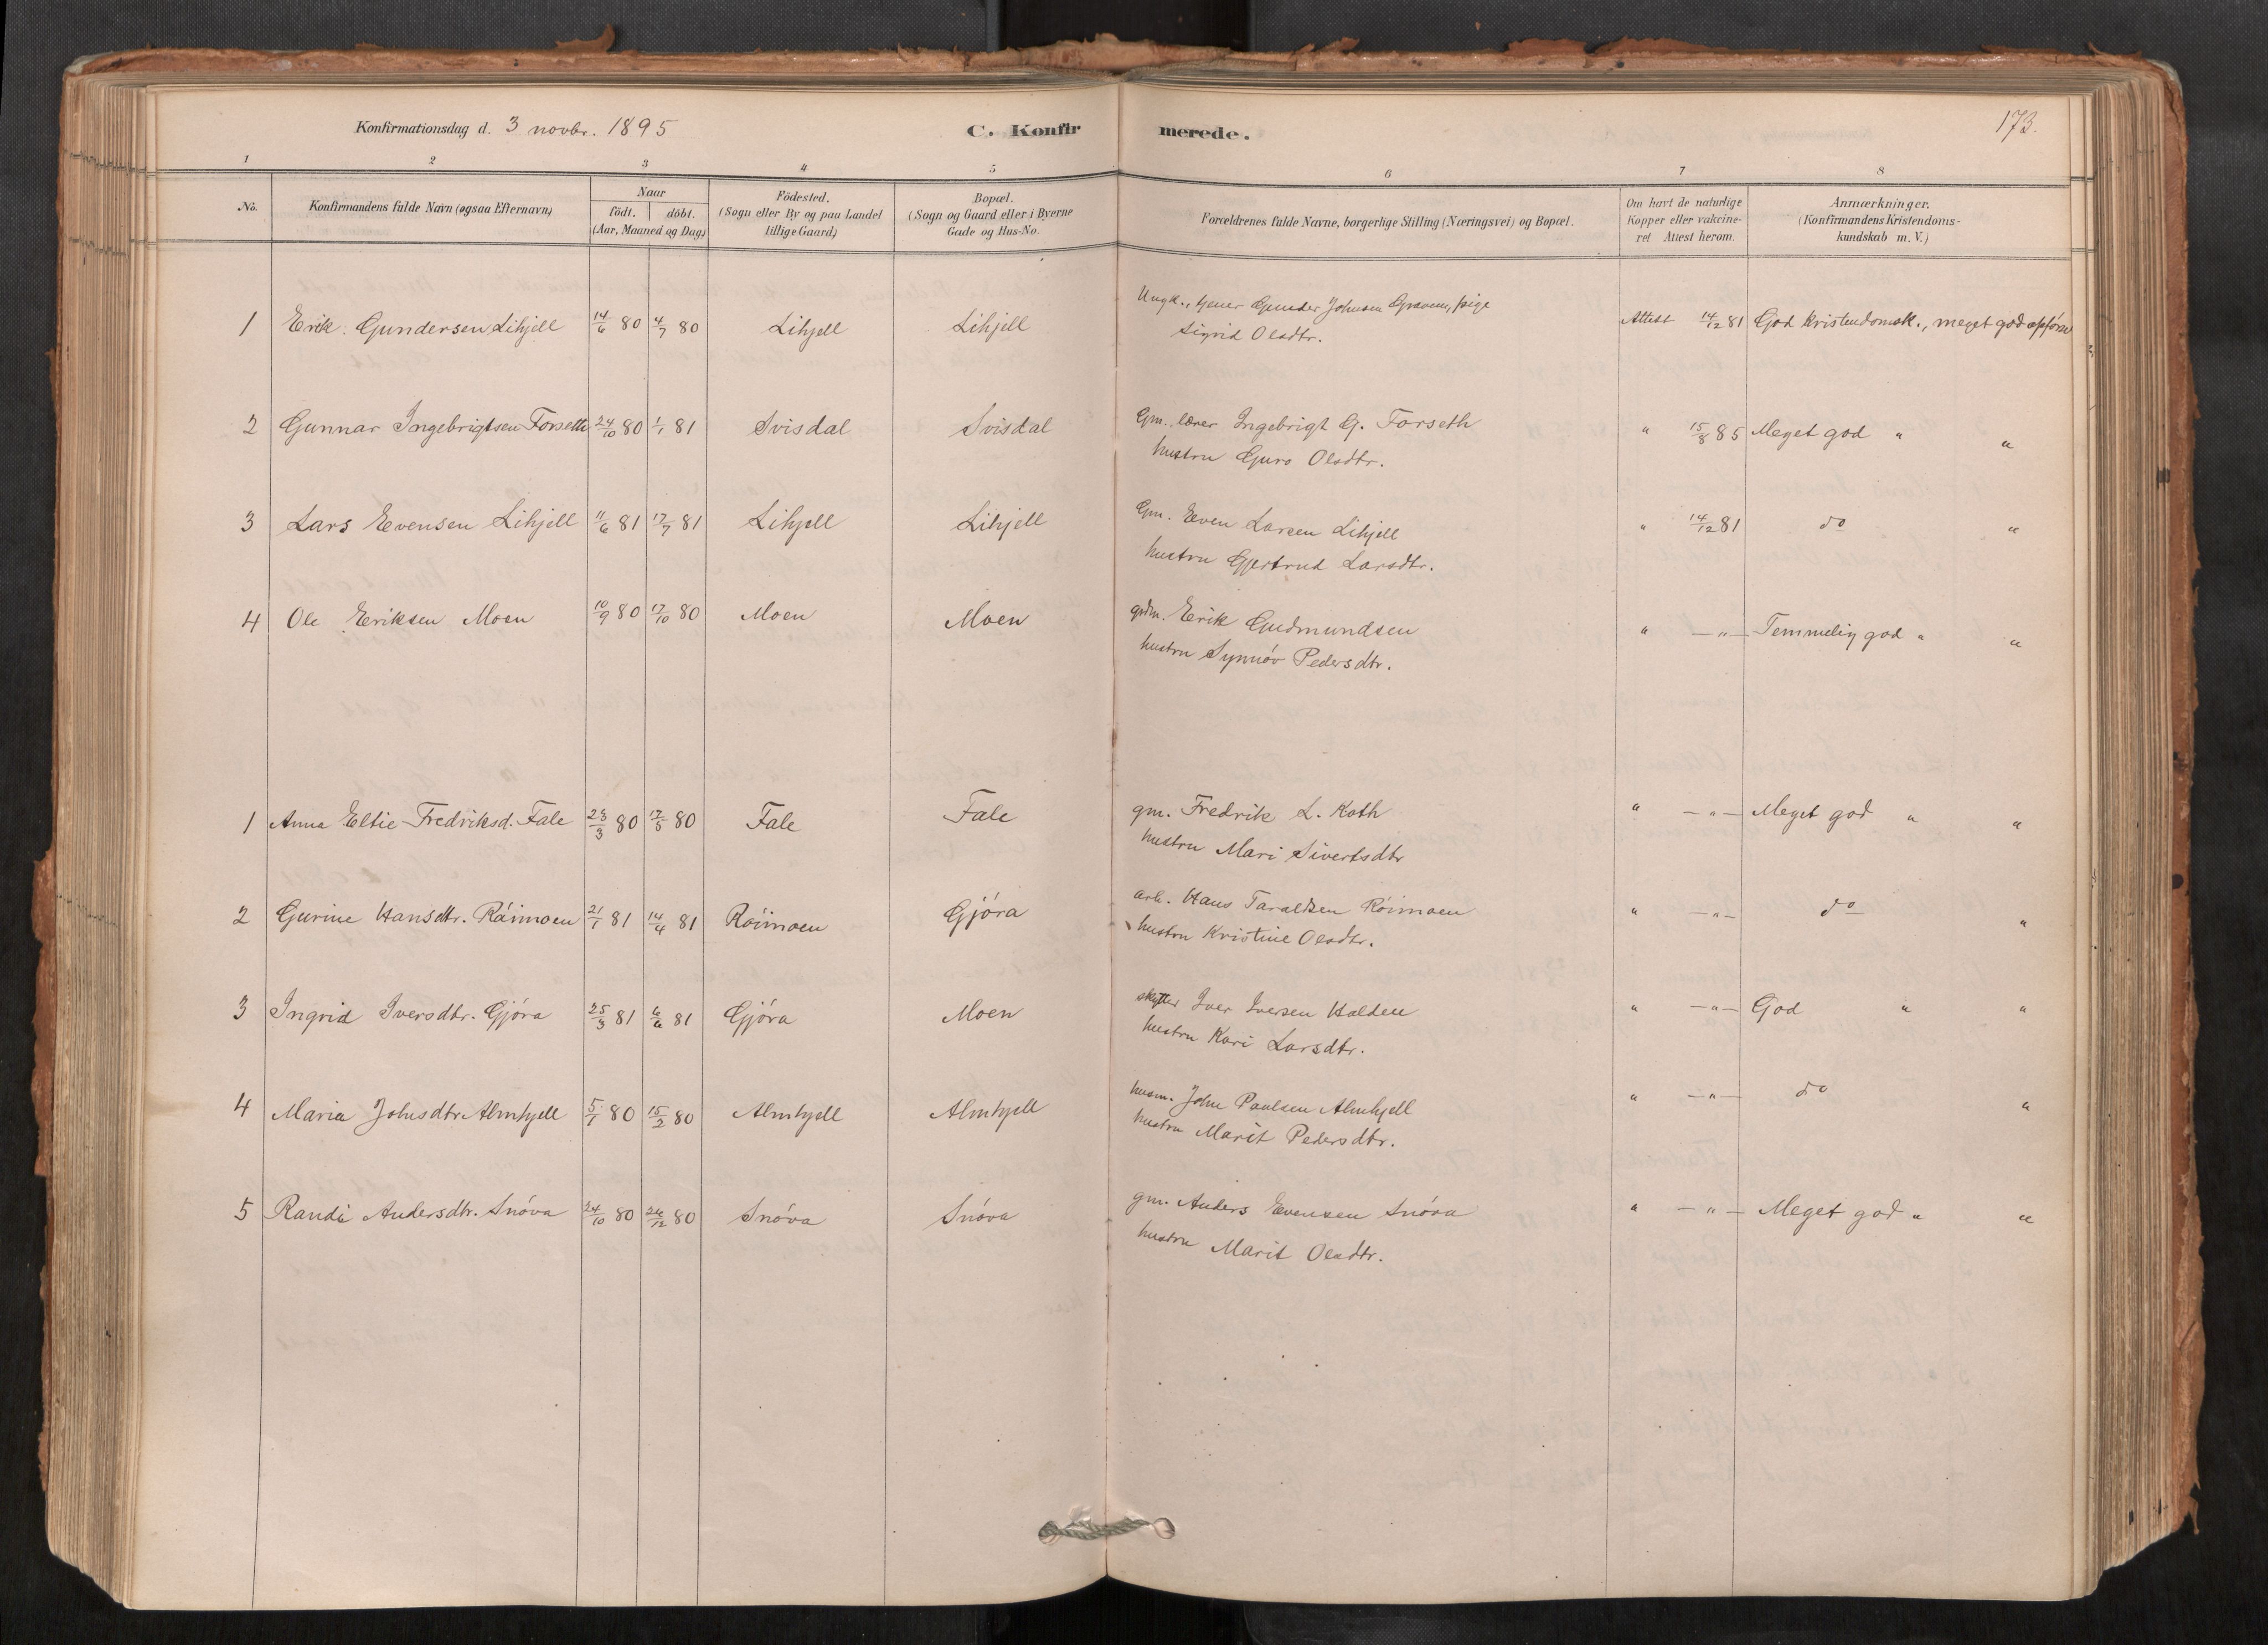 Konfirmationsdag d. 3 novbr. 1895
C. Konfirmerede.
173.
1 2 3 4 5 6 7 8
No.
Konfirmandens fulde Navn (ogsaa Efternavn)
Naar
födt. döbt.
(Aar, Maaned og Dag)
Födested.
(Sogn eller By og paa Landet
tillige Gaard)
Bopæl.
(Sogn og Gaard eller i Byerne
Gade og Hus-No.
Forældrenes fulde Navne, borgerlige Stilling (Næringsvei) og Bopæl.
Om havt de naturlige
Kopper eller vakcine-
ret Attest herom.
Anmærkninger.
(Konfirmandens Kristendoms-
kundskab m. V.)
1 Erik Gundersen Lihjell 14/6 80 4/7 80 Lihjell Lihjell Ungk., tjener Gunder Johnsen Gravem, pige Attest 14/12 81 God Kristendomsk., meget god opførsel
Sigrid Olsdtr.
2 Gunnar Ingebrigtsen Forseth 24/10 80 1/1 81 Svisdal Svisdal Gm., lærer Ingebrigt G. Forseth " 15/8 85 Meget god " "
hustru Guro Olsdtr.
3 Lars Evensen Lihjell 11/6 81 17/7 81 Lihjell Lihjell Gm. Even Larsen Lihjell " 14/12 81 do "
hustru Gjertrud Larsdtr.
4 Ole Eriksen Moen 10/9 80 17/10 80 Moen Moen grdm. Erik Gudmundsen " — " — Temmelig god " "
hustru Synnöv Pedersdtr.
1 Anna Eltie Fredriksd. Fale 23/3 80 17/5 80 Fale Fale gm. Fredrik L. Koth " — " — Meget god " "
hustru Mari Sivertsdtr
2 Gurine Hansdtr. Röimoen 21/1 81 14/4 81 Röimoen Gjöra arb. Hans Taraldsen Röimoen " — " — do "
hustru Kristine Olsdtr.
3 Ingrid Iversdtr. Gjöra 25/3 81 6/6 81 Gjöra Moen Iver Iversen Halden " — " — God " "
hustru Kari Larsdtr.
4 Maria Johnsdtr Almhjell 5/1 80 15/2 80 Almhjell Almhjell husm. John Paulsen Almhjell " — " — do "
hustru Marit Pedersdtr.
5 Randi Andersdtr. Snöva 24/10 80 26/12 80 Snöva Snöva gm. Anders Evensen Snöva " — " — Meget god " "
hustru Marit Olsdtr.